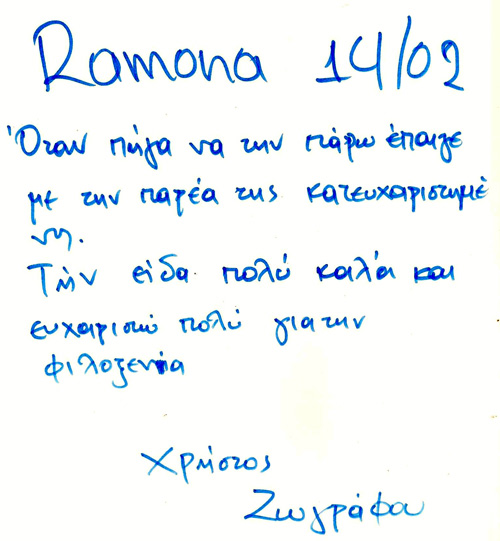 Ramona 14/02
Όταν πήγα να την πάρω έπαιζε
με την παρέα της κατευχαριστημέ
νη.
Τήν είδα πολύ καλά και
ευχαριστώ πολύ για την
φιλοξενία
Χρήστος
Ζωγράφου